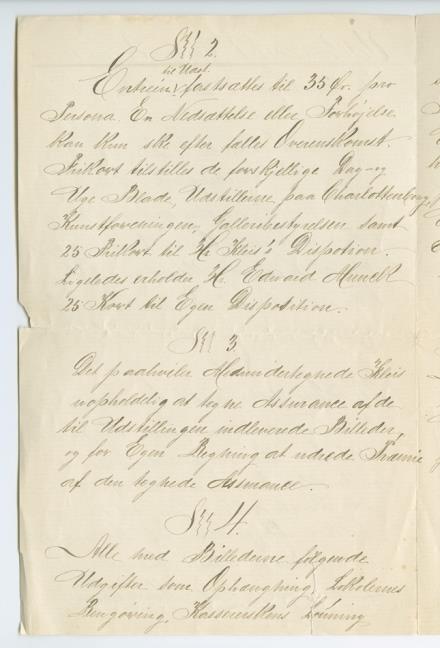 §§§ 2.
til Udst.
Entréen fastsættes til 35 Ør. pro
Persona. En Nedsættelse eller Forhøjelse
kan kun ske efter fælles Overenskomst.
Frikort tilstilles de forskjellige Dag- og
Uge Blade, Udstillerne paa Charlottenborg,
Kunstforeningen, Galleribestyrelsen samt
25 Frikort til Hr Kleis's Dispotion.
Ligeledes erholder Hr. Edward Munch
25 Kort til Egen Disposition.
§§§ 3
Det paahviler Medundertegnede Kleis
uopholdelig at tegne Assurance af de
til Udstillingen indleverede Billeder,
og for Egen Regning at udrede Præmie
af den tegnede Assurance.
§§§ 4.
Alle med Billederne følgende
Udgifter som Ophængning, Lokalernes
Rengøring, Kassererskens Lønning